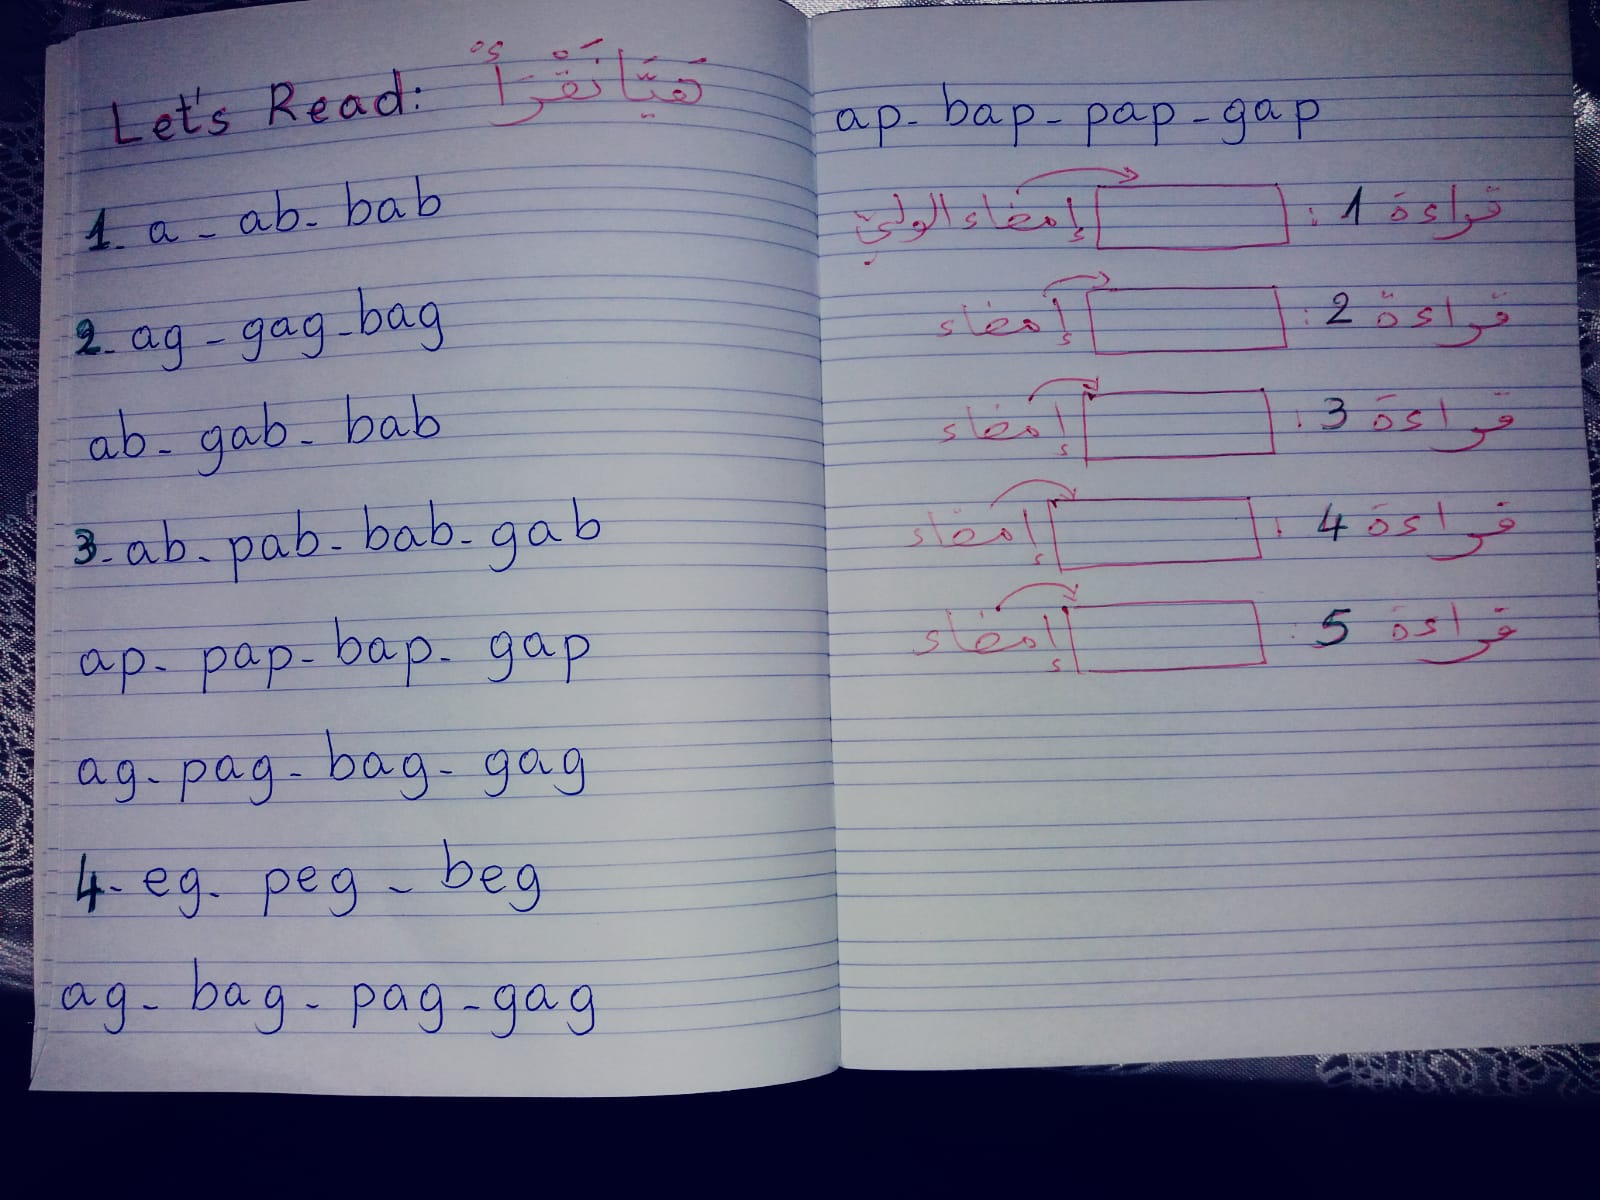 Let's Read: هَيَّا نَقْرَأْ
1. a - ab - bab
2. ag - gag - bag
ab - gab - bab
3. ab - pab - bab - gab
ap - pap - bap - gap
ag - pag - bag - gag
4. eg - peg - beg
ag - bag - pag - gag
ap - bap - pap - gap
قراءة 1 : إمضاء الوليّ
قراءة 2 : إمضاء
قراءة 3 : إمضاء
قراءة 4 : إمضاء
قراءة 5 : إمضاء